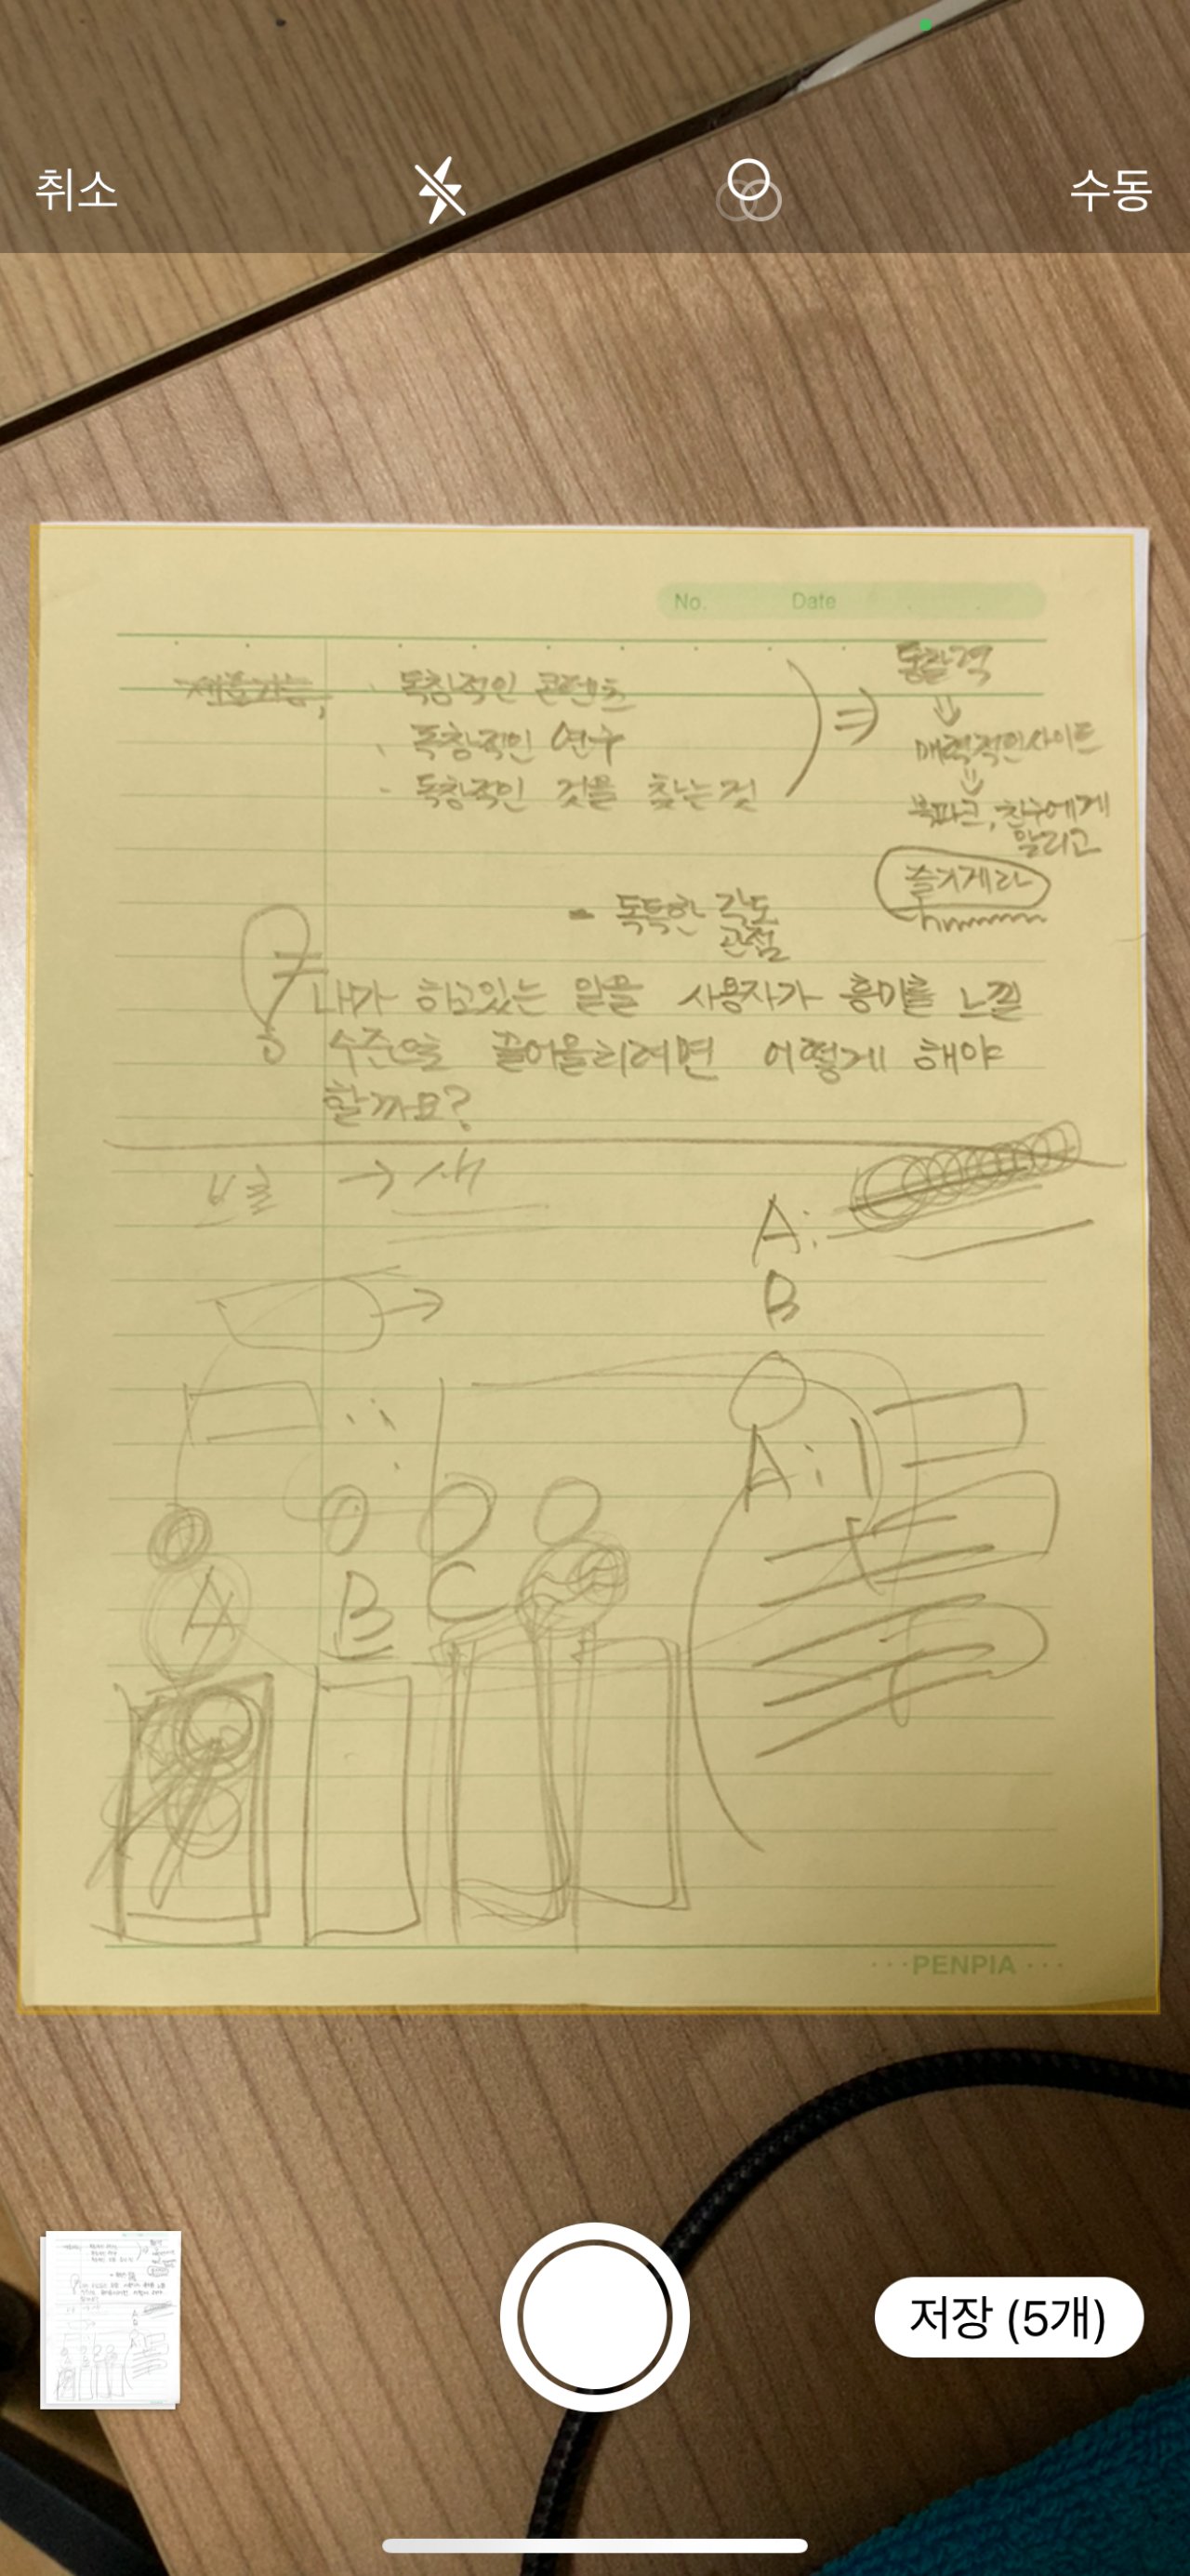 취소
수동
No. Date
독창적인 콘텐츠
독창적인 연구
- 독창적인 것을 찾는것
⇒
통찰력
⇓
매력적인사이트
⇓
북파크, 친구에게
알리고
즐기게라
- 독특한 각도
관점
내가 하고있는 일을 사용자가 흥미를 느낄
수준으로 끌어올리려면 어떻게 해야
할까요?
→ 새
A:
B
A:
A B C
···PENPIA···
저장 (5개)